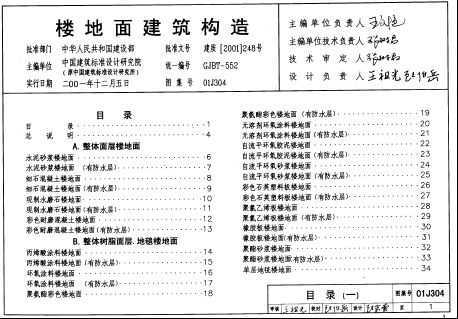 楼地面建筑构造
批准部门 中华人民共和国建设部 批准文号 建质[2001]248号
主编单位 中国建筑标准设计研究院 统一编号 GJBT-552
(原中国建筑标准设计研究所)
实行日期 二00一年十二月五日 图集号 01J304
主编单位负责人
主编单位技术负责人
技术审定人
设计负责人
目录
目录 1
总说明 4
A. 整体面层楼地面
水泥砂浆楼地面 6
水泥砂浆楼地面 (有防水层) 7
细石混凝土楼地面 8
细石混凝土楼地面 (有防水层) 9
现制水磨石楼地面 10
现制水磨石楼地面 (有防水层) 11
彩色耐磨混凝土楼地面 12
彩色耐磨混凝土楼地面 (有防水层) 13
B. 整体树脂面层、地毯楼地面
丙烯酸涂料楼地面 14
丙烯酸涂料楼地面 (有防水层) 15
环氧涂料楼地面 16
环氧涂料楼地面 (有防水层) 17
聚氨酯彩色楼地面 18
聚氨酯彩色楼地面 (有防水层) 19
无溶剂环氧涂料楼地面 20
无溶剂环氧涂料楼地面 (有防水层) 21
自流平环氧胶泥楼地面 22
自流平环氧胶泥楼地面 (有防水层) 23
自流平环氧砂浆楼地面 24
自流平环氧砂浆楼地面 (有防水层) 25
彩色石英塑料板楼地面 26
彩色石英塑料板楼地面 (有防水层) 27
聚氯乙烯板楼地面 28
聚氯乙烯板楼地面 (有防水层) 29
橡胶板楼地面 30
橡胶板楼地面 (有防水层) 31
聚酯砂浆楼地面 32
聚酯砂浆楼地面 (有防水层) 33
单层地毯楼地面 34
目录(一) 图集号 01J304
审核 校对 设计 页 1